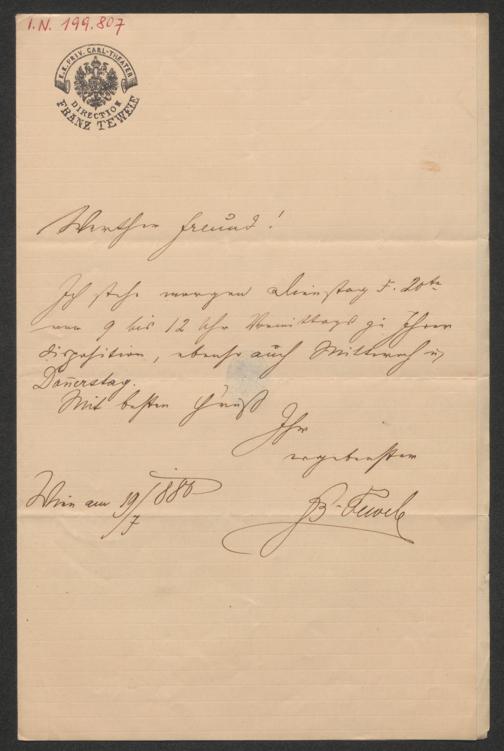 I.N. 199.807
K.K. PRIV. CARL-THEATER
DIRECTION
FRANZ TEWELE
Werther Freund!
Ich stehe morgen Dienstag d. 20te
von 9 bis 12 Uhr Vormittags zu Ihrer
Disposition, ebenso auch Mittwoch u
Donerstag.
Mit besten Gruß
Ihr
ergebenster
Wien am 19/7 1880
Tewele